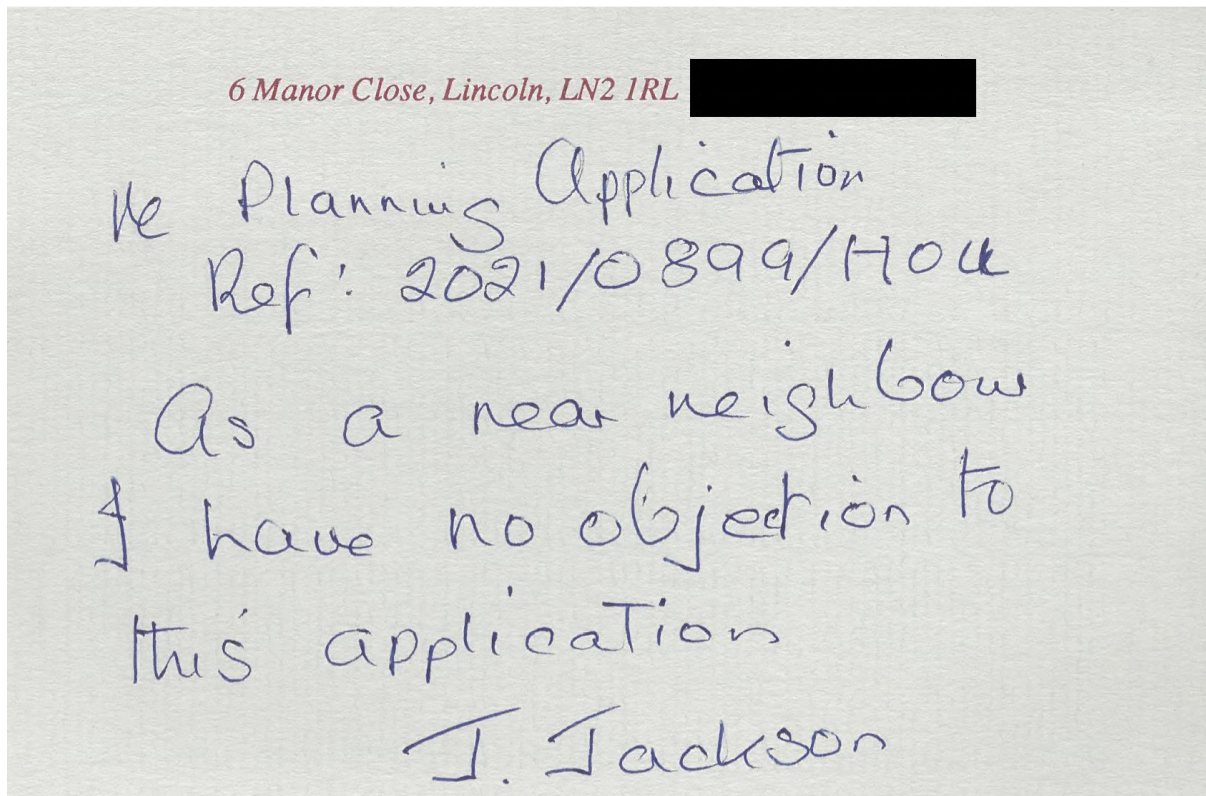 6 Manor Close, Lincoln, LN2 1RL
re Planning Application
Ref: 2021/0899/HOU
As a near neighbour
I have no objection to
this application
J. Jackson